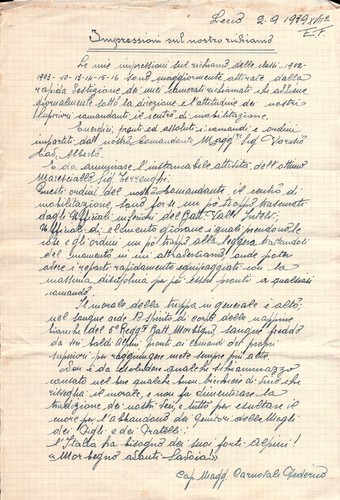 Lecco 2.9.1939 XVII°
E.F.
Impressioni sul nostro richiamo
Le mie impressioni sul richiamo delle classi 1902-
1903-10-13-14-15-16 sono maggiormente attirate dalla
rapida vestizione dei miei camerati richiamati che avviene
giornalmente sotto la direzione e l'attitudine dei nostri
superiori comandanti il centro di mobilitazione.
Energici, pronti ed assoluti i comandi e ordini
impartiti dal nostro Comandante Magg.re Sig.
Cav. Alberto.
È da ammirare l'instancabile attività dell'ottimo
Maresciallo Sig.
Questi ordini del nostro Comandante, il centro di
mobilitazione, sono forse un pò troppo trascurati
dagli Ufficiali inferiori del Batt. Valle
Ufficiali di elemento giovane i quali prendono le
cose e gli ordini un pò troppo alla leggera trascurati
del momento in cui attraversiamo, onde poter
avere i reparti rapidamente equipaggiati con la
massima disciplina per poi essere pronti a qualsiasi
comando.
Il morale della truppa in generale è alto,
nel sangue arde lo spirito di corpo delle nappine
bianche del 5° Regg. Batt. Morbegno, sangue freddo
da veri baldi Alpini pronti ai comandi dei propri
superiori per raggiungere mete sempre più alte.
Non è da escludere qualche schiammazzo
causato nel bere qualche buon bicchiere di vino che
risveglia il morale, e non fa dimenticare la
tradizione dei nostri veci, e tutto per esultare il
cuore per l'abbandono dei Genitori delle Mogli
dei Figli e dei Fratelli:
l'Italia ha bisogno dei suoi forti Alpini!
"Morbegno avanti - Savoia"
Cap. Magg. Carnovali Federico